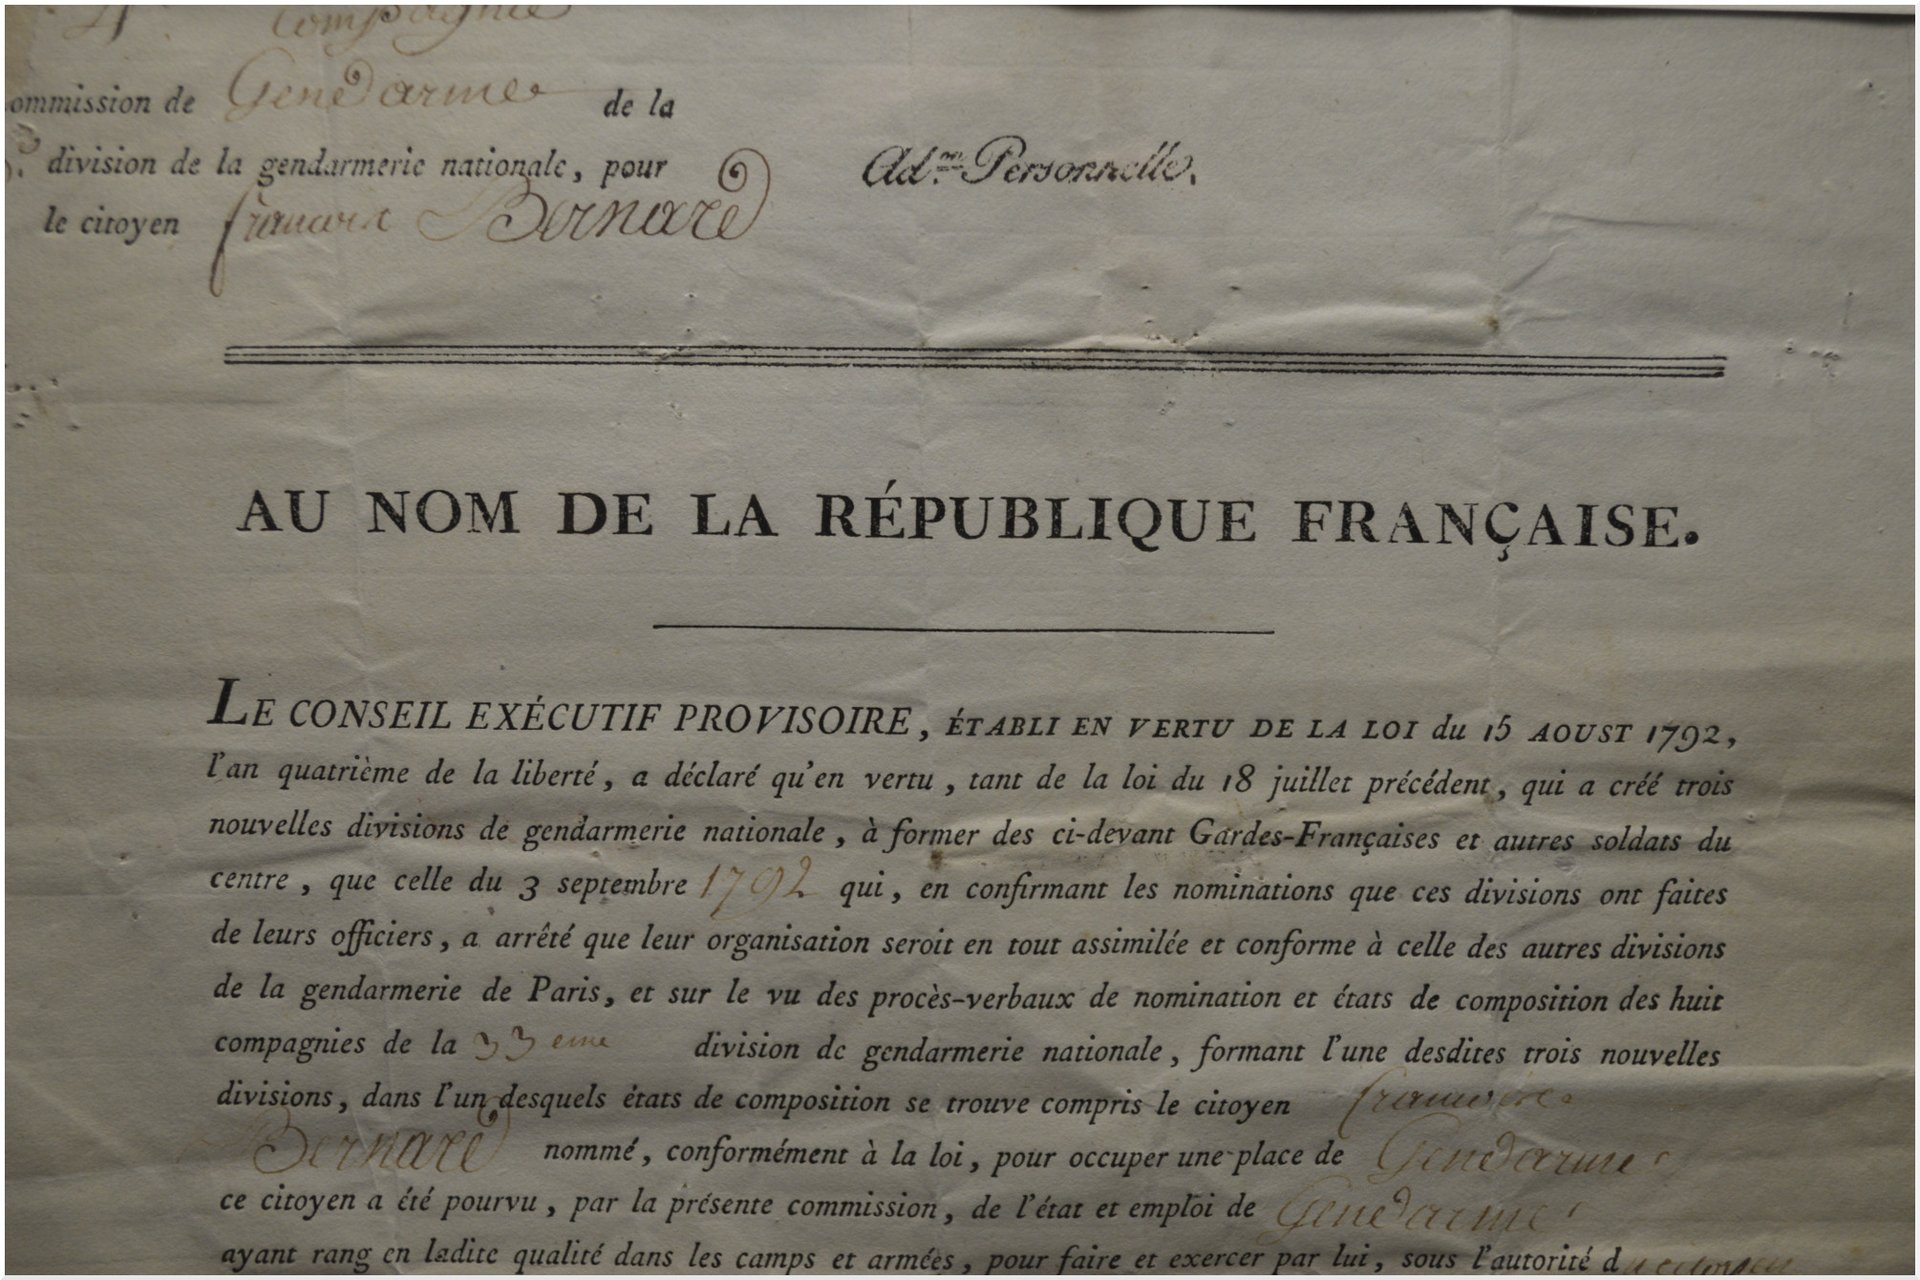 4e Compagnie
ommission de Gendarme de la
3e. division de la gendarmerie nationale, pour
Ad.on Personnelle.
le citoyen francois Bernard
AU NOM DE LA RÉPUBLIQUE FRANÇAISE.
LE CONSEIL EXÉCUTIF PROVISOIRE, ÉTABLI EN VERTU DE LA LOI du 15 AOUST 1792,
l'an quatrième de la liberté, a déclaré qu'en vertu, tant de la loi du 18 juillet précédent, qui a créé trois
nouvelles divisions de gendarmerie nationale, à former des ci-devant Gardes-Françaises et autres soldats du
centre, que celle du 3 septembre 1792 qui, en confirmant les nominations que ces divisions ont faites
de leurs officiers, a arrêté que leur organisation seroit en tout assimilée et conforme à celle des autres divisions
de la gendarmerie de Paris, et sur le vu des procès-verbaux de nomination et états de composition des huit
compagnies de la 33eme division de gendarmerie nationale, formant l'une desdites trois nouvelles
divisions, dans l'un desquels états de composition se trouve compris le citoyen francois
Bernard nommé, conformément à la loi, pour occuper une place de Gendarme
ce citoyen a été pourvu, par la présente commission, de l'état et emploi de Gendarme
ayant rang en ladite qualité dans les camps et armées, pour faire et exercer par lui, sous l'autorité du citoyen